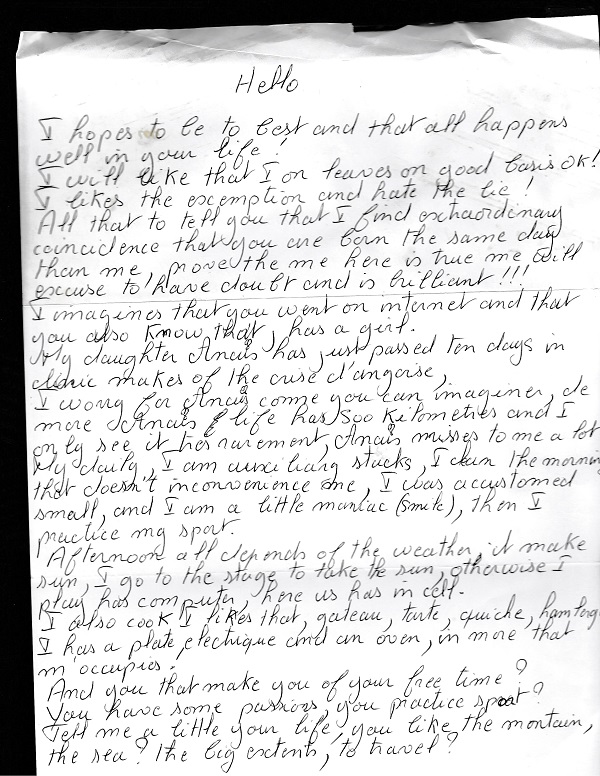 Hello
I hopes to be to best and that all happens
well in your life!
I will like that I on leaves on good basis OK!
I likes the exemption and hate the lie!
All that to tell you that I find extraordinary
coincidence that you are born the same day
than me, prove the me here is true me will
excuse to have doubt and is brilliant!!!
I imagines that you went on internet and that
you also know that, has a girl.
My daughter Anaïs has just passed ten days in
clinic makes of the crise d'angoisse,
I worry for Anaïs come you can imaginer, de
more Anaïs life has 500 kilometries and I
only see it tres rarement, Anaïs misses to me a lot
My daily, I am auxiliary stucks, I clun the morning
that doesn't inconvenience me, I was accustomed
small, and I am a little maniac (smile), then I
practice my sport.
Afternoon all depends of the weather, it make
sun, I go to the stage to take the sun, otherwise I
play has computer, here us has in cell.
I also cook I likes that, gateau, tarte, quiche,
I has a plate electrique and an oven, in more that
m'occupies.
And you that make you of your free time?
You have some passions, you practice sport?
Tell me a little your life, you like the montain,
the sea? the big extents, to travel?